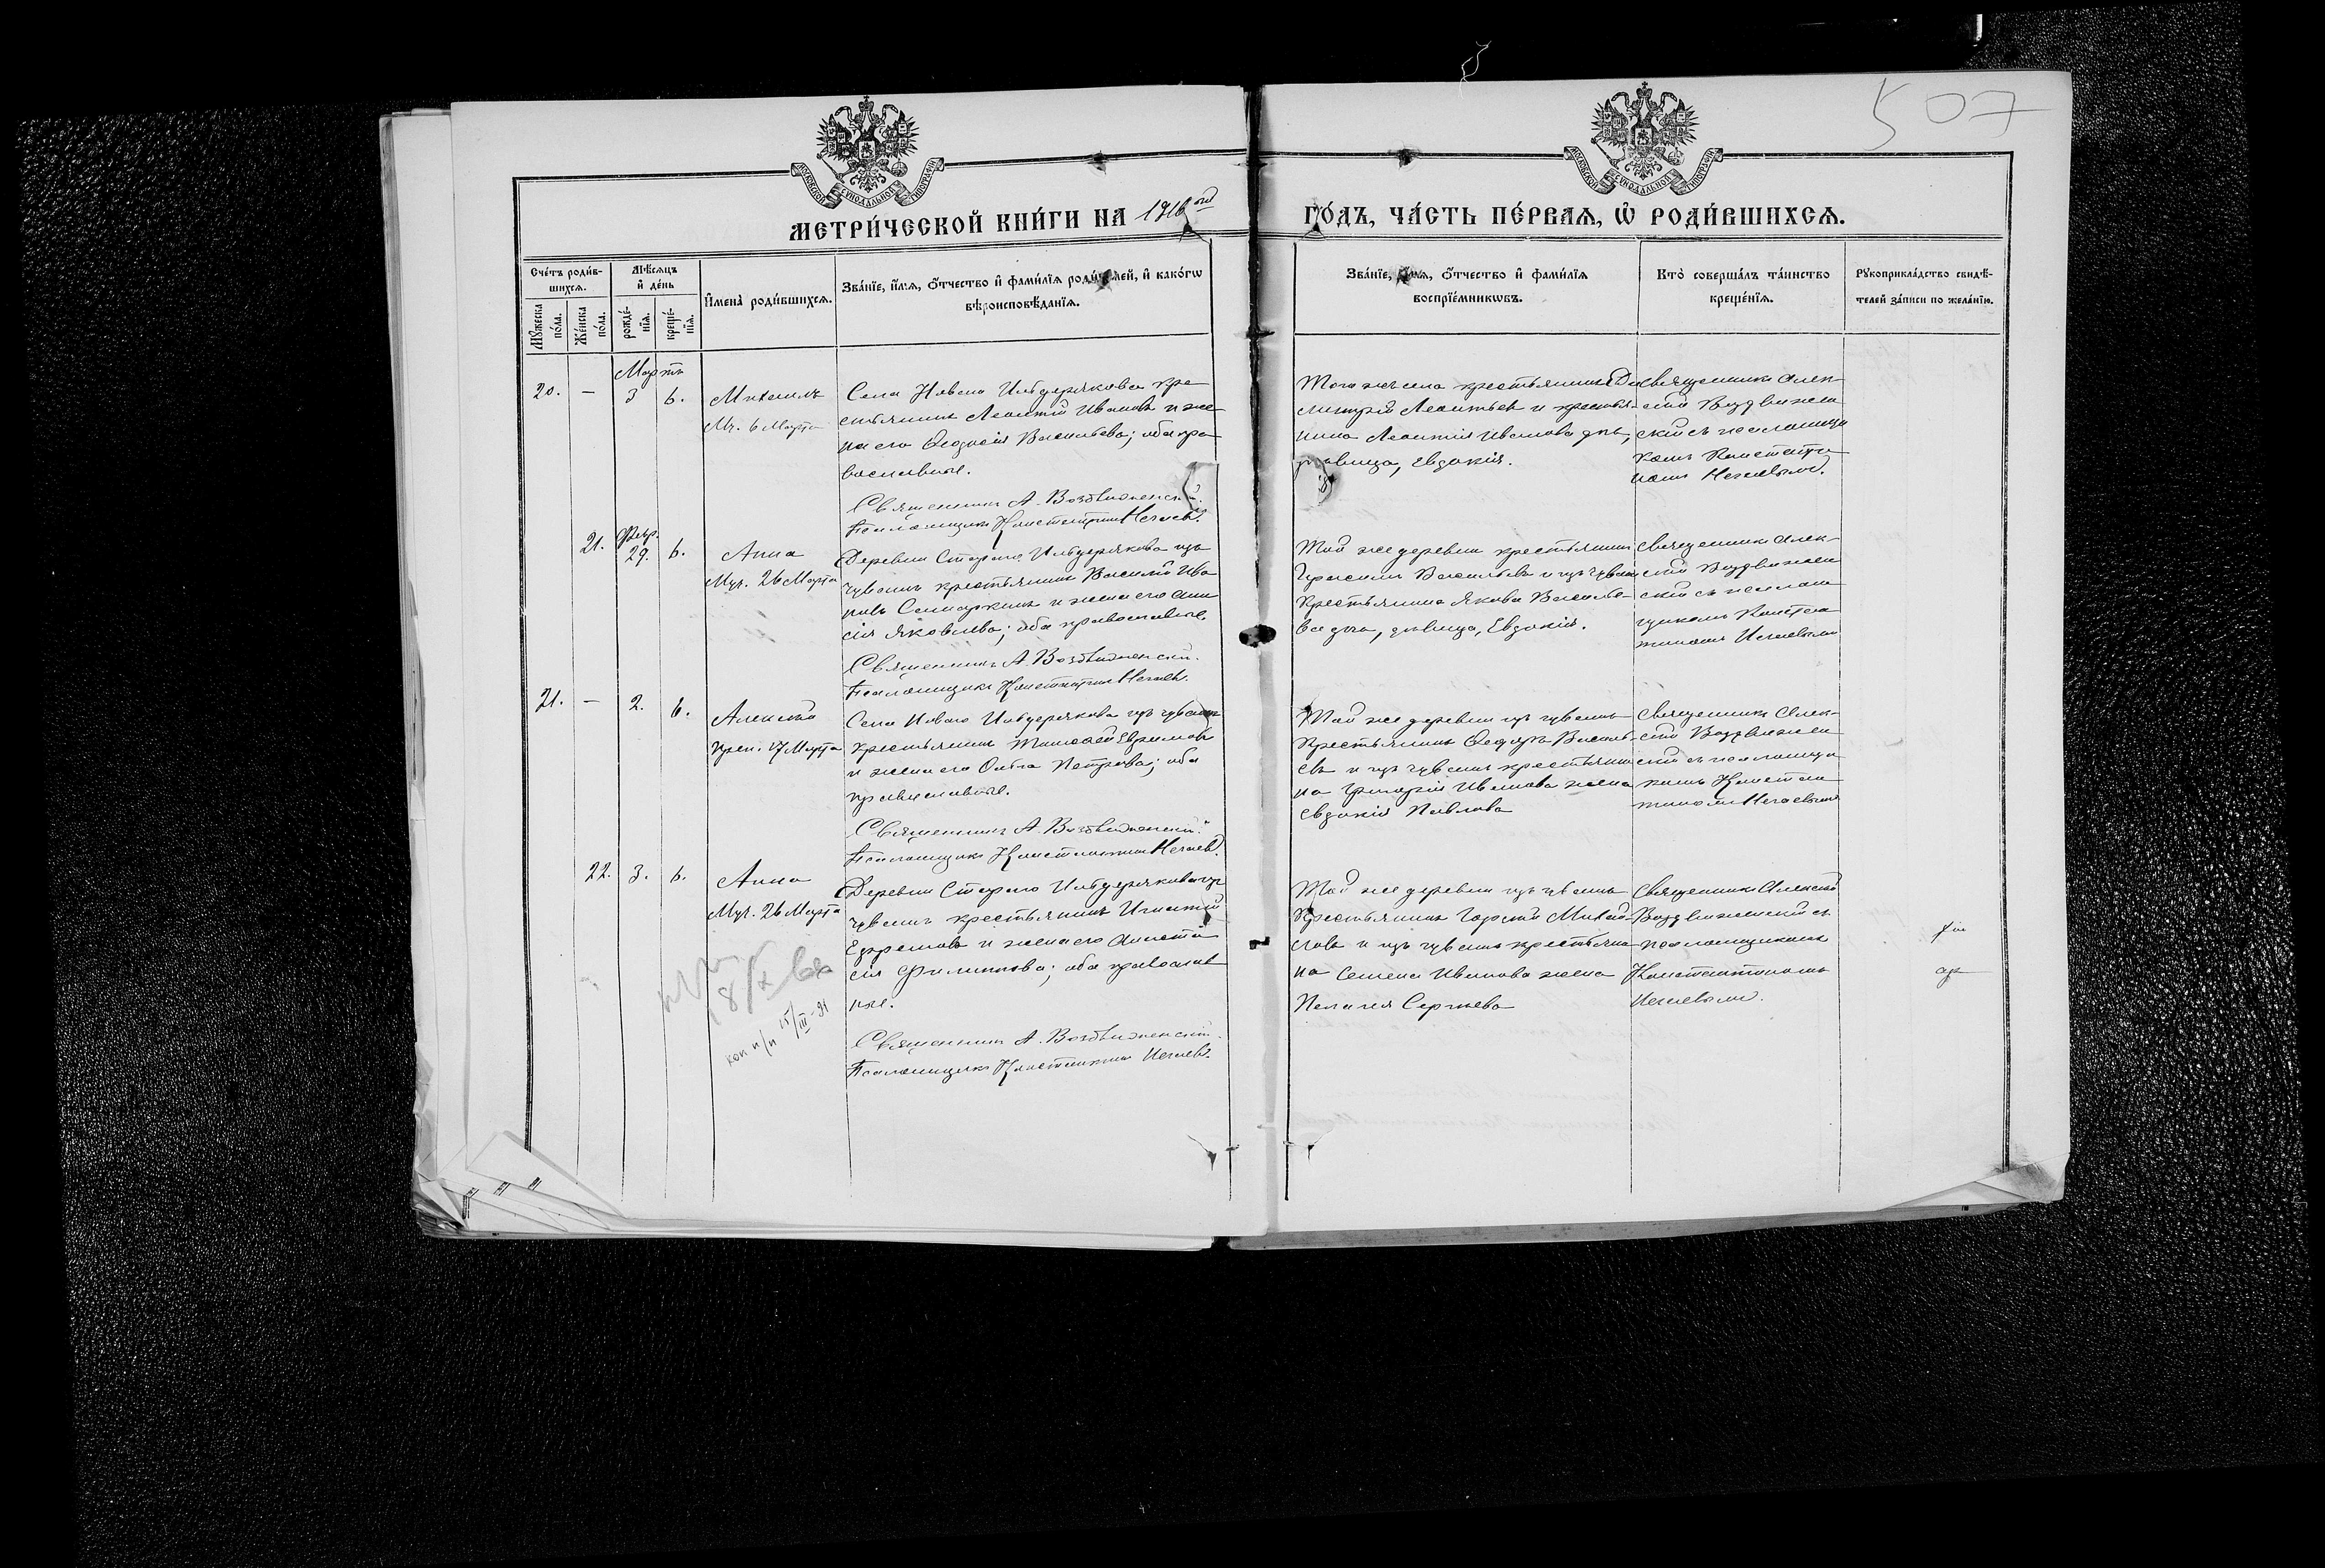 507
МОСКОВСКОЙ СѴНОДАЛЬНОЙ ТИПОГРАФІИ
МОСКОВСКОЙ СѴНОДАЛЬНОЙ ТИПОГРАФІИ
МЕТРИ́ЧЕСКОЙ КНИ́ГИ НА 1916ой ГО́ДЪ, ЧА́СТЬ ПЕ́РВАѦ, Ѡ҆ РОДИ́ВШИХСѦ.
Сче́тъ роди́в-
шихсѧ.
Мꙋ́жеска по́ла.
Же́нска по́ла.
Мѣ́сѧцъ и҆ де́нь
рожде́-нїѧ.
креще́-нїѧ.
И҆мена̀ роди́вшихсѧ.
Зва́нїе, и҆́мѧ, ѻ҆́тчество и҆ фами́лїѧ роди́телей, и҆ како́гѡ
вѣроисповѣ́данїѧ.
Зва́нїе, и҆́мѧ, ѻ҆́тчество и҆ фами́лїѧ
воспрїе́мникѡвъ.
Кто̀ соверша́лъ та́инство
креще́нїѧ.
Рꙋкоприкла́дство свидѣ́-
телей за́писи по жела́нїю.
Мартъ
20. — 3 6.
Михаилъ
Мч. 6 Марта
Села Новаго Ильдерякова кре
стьянинъ Леонтій Ивановъ и же
на его Ѳеодосія Васильева; оба пра
вославные.
Священникъ А. Воздвиженскій.
Псаломщикъ Константинъ Нечаевъ.
Того же села крестьянинъ Ди
митрій Леонтьевъ и крестья
нина Леонтія Иванова дочь,
дѣвица, Евдокія.
Священникъ Алек
сій Воздвижен
скій съ псаломщи
комъ Констант
номъ Нечаевымъ.
21. Февр. 29. 6.
Анна
Муч. 26 Марта
Деревни Стараго Ильдерякова изъ
чувашъ крестьянинъ Василій Ива
новъ Самаркинъ и жена его Ани
сія Яковлева; оба православные.
Священникъ А. Воздвиженскій.
Псаломщикъ Константинъ Нечаевъ.
Той же деревни крестьянинъ
Герасимъ Васильевъ и изъ чувашъ
крестьянина Якова Василье
ва дочь, дѣвица, Евдокія.
Священникъ Алек
сій Воздвижен
скій съ псалом
щикомъ Констан
тиномъ Нечаевымъ
21. — 2. 6.
Алексій
преп. 17 Марта
Села Новаго Ильдерякова изъ чувашъ
крестьянинъ Тимоѳей Ефимовъ
и жена его Ольга Петрова; оба
православные.
Священникъ А. Воздвиженскій.
Псаломщикъ Константинъ Нечаевъ.
Той же деревни изъ чувашъ
крестьянинъ Ѳеодоръ Василь
евъ и изъ чувашъ крестьяни
на Григорія Иванова жена
Евдокія Павлова
Священникъ Алек
сій Воздвижен
скій съ псаломщи
комъ Констан
тиномъ Нечаевымъ
22. 3. 6.
Анна
Муч. 26 Марта
8/X 68
коп н/п 15/III-91
Деревни Стараго Ильдерякова изъ
чувашъ крестьянинъ Игнатій
Ефремовъ и жена его Анаста
сія Филиппова; оба православ
ные.
Священникъ А. Воздвиженскій.
Псаломщикъ Константинъ Нечаевъ.
Той же деревни изъ чувашъ
крестьянинъ Георгій Михай
ловъ и изъ чувашъ крестьяни
на Семена Иванова жена
Пелагея Сергѣева
Священникъ Алексій
Воздвиженскій съ
псаломщикомъ
Константиномъ
Нечаевымъ.